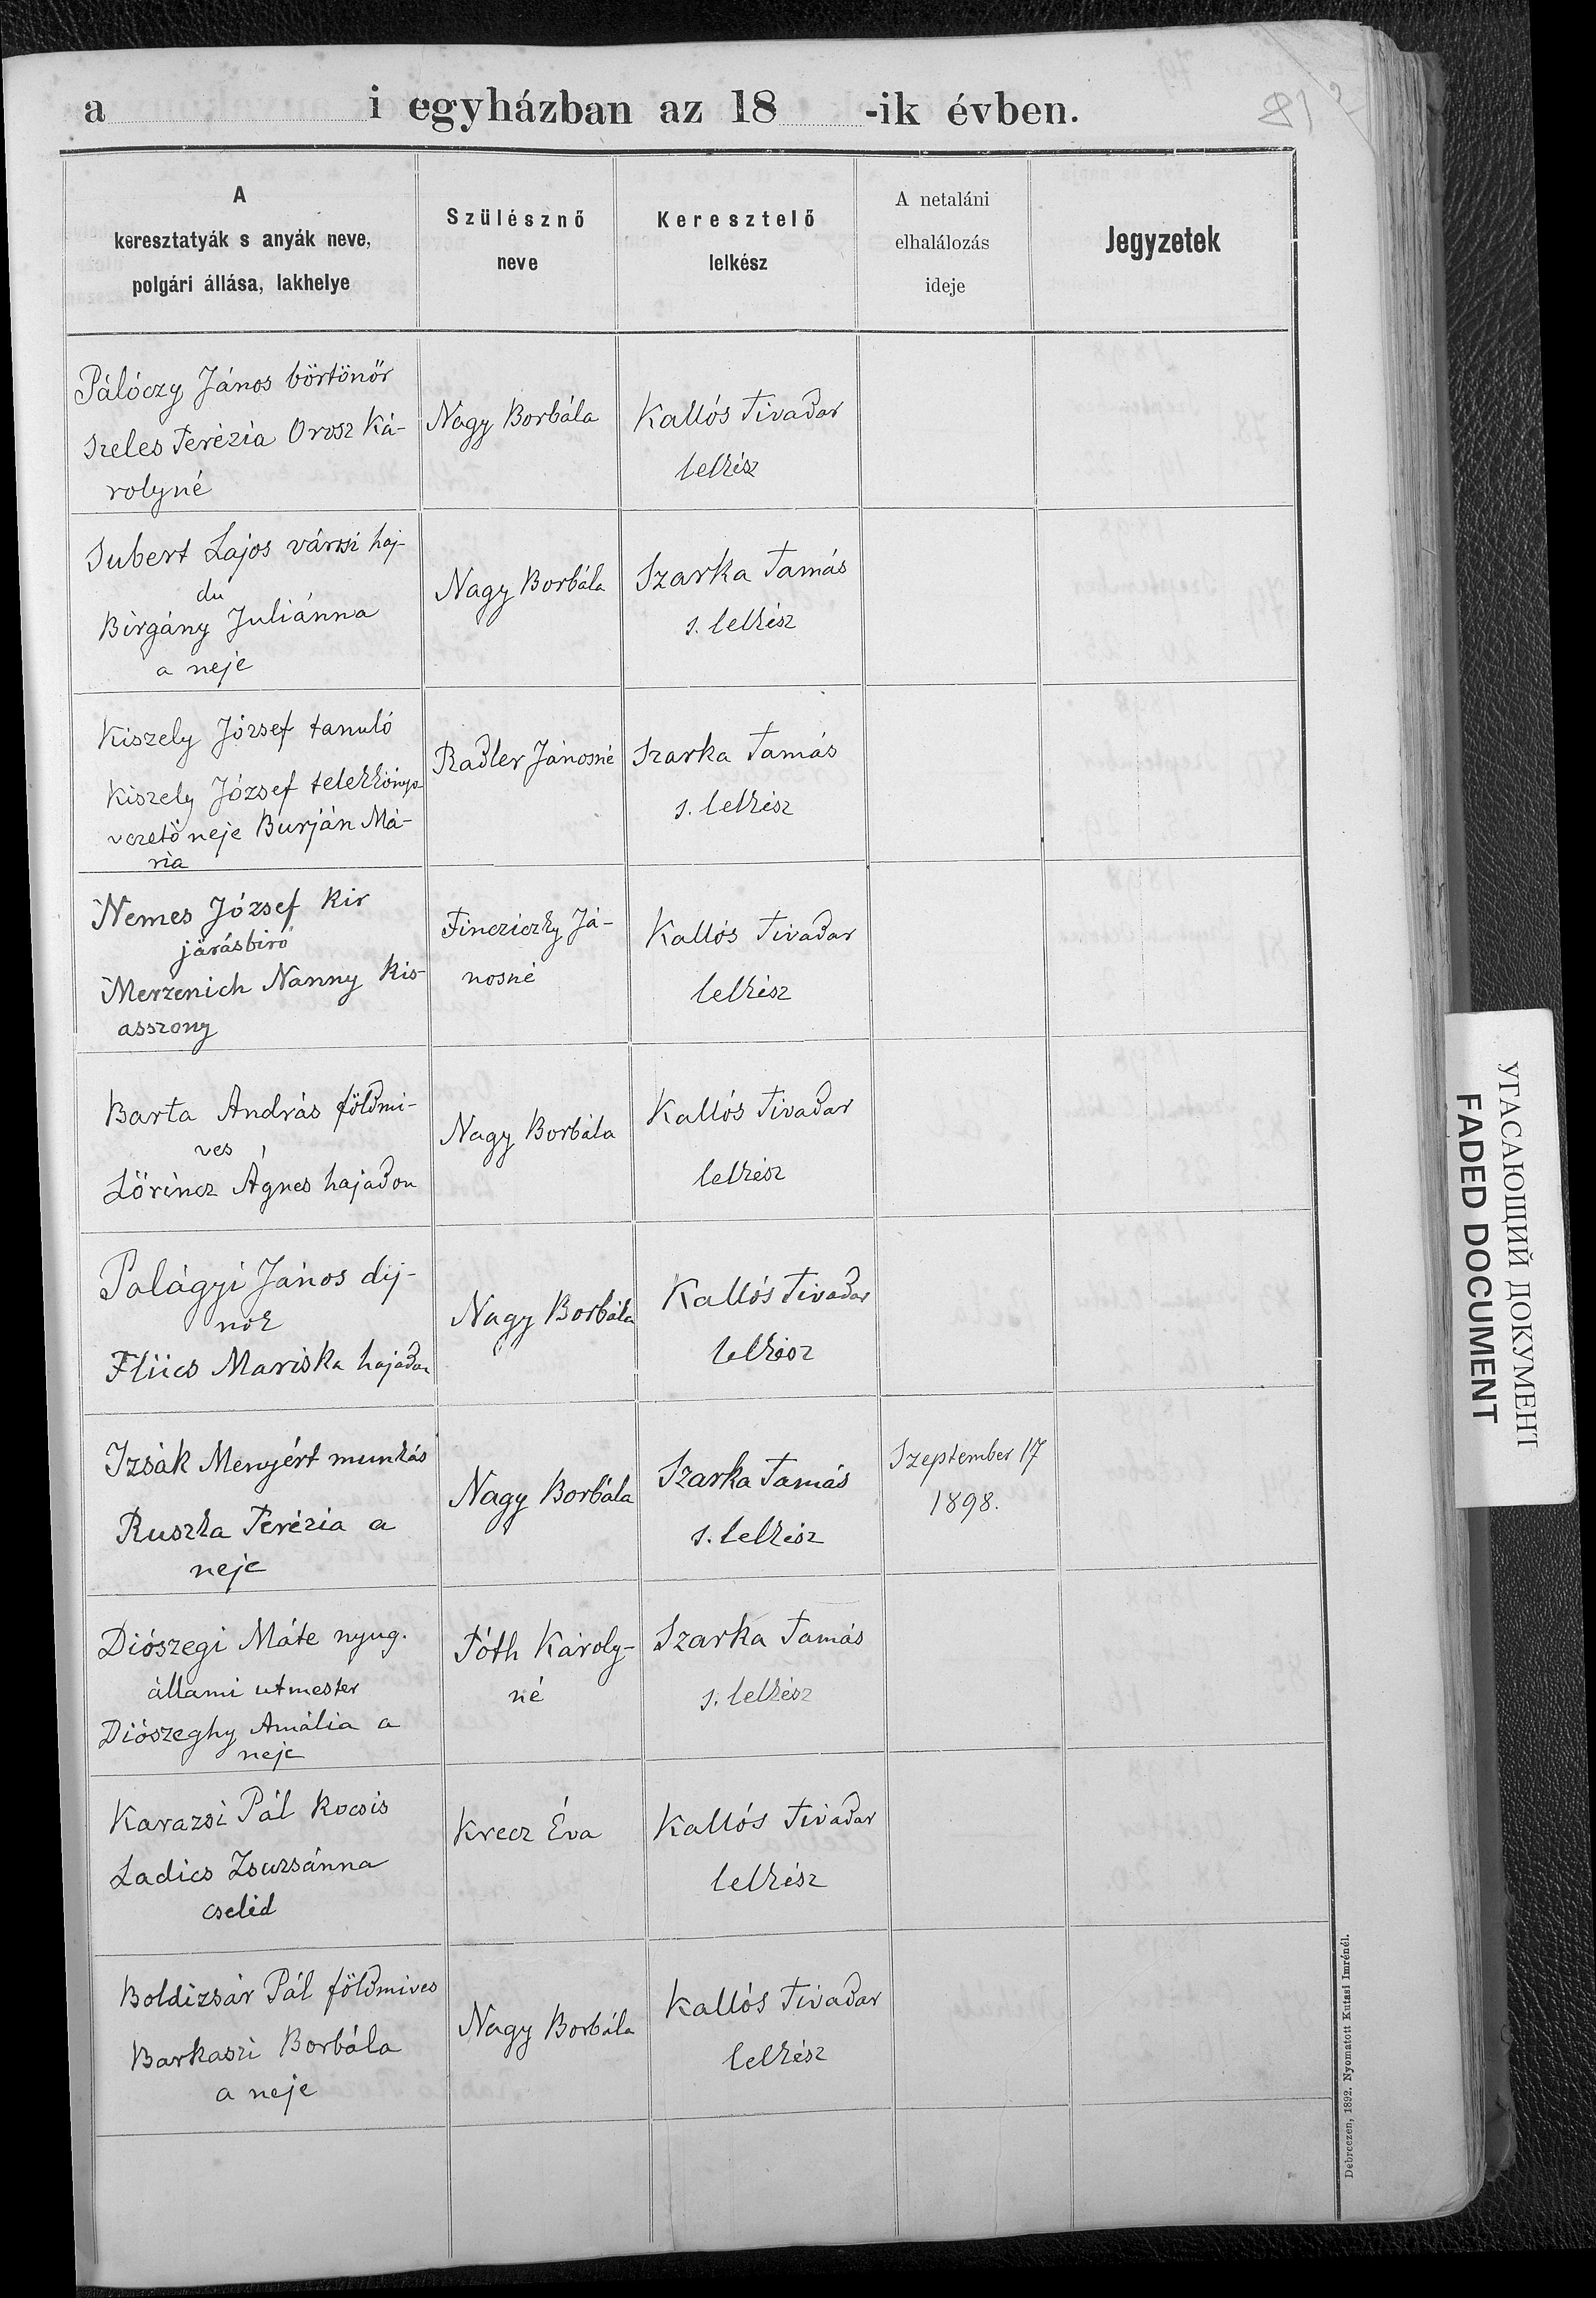 a i egyházban az 18 -ik évben.
A
keresztatyák s anyák neve,
polgári állása, lakhelye
Szülésznő
neve
Keresztelő
lelkész
A netaláni
elhalálozás
ideje
Jegyzetek
Pálóczy János börtönőr
Szeles Terézia Orosz Ká-
rolyné
Nagy Borbála
Kallós Tivadar
lelkész
Subert Lajos városi haj-
du
Birgány Juliánna
a neje
Nagy Borbála
Szarka Tamás
s. lelkész
Kiszely József tanuló
Kiszely József telekkönyv
vezető neje Burján Má-
ria
Radler Jánosné
Szarka Tamás
s. lelkész
Nemes József kir
járásbiró
Merzenich Nanny kis-
asszony
Fincziczky Já-
nosné
Kallós Tivadar
lelkész
Barta András földmi-
ves
Lőrincz Ágnes hajadon
Nagy Borbála
Kallós Tivadar
lelkész
Palágyi János dij-
nok
Flücs Mariska hajadon
Nagy Borbála
Kallós Tivadar
lelkész
Izsák Menyért munkás
Ruszka Terézia a
neje
Nagy Borbála
Szarka Tamás
s. lelkész
Szeptember 17
1898.
Diószegi Máte nyug.
állami utmester
Diószeghy Amália a
neje
Tóth Károly-
né
Szarka Tamás
s. lelkész
Karazsi Pál kocsis
Ladics Zsuzsánna
cseléd
Krecz Éva
Kallós Tivadar
lelkész
Boldizsár Pál földmives
Barkaszi Borbála
a neje
Nagy Borbála
Kallós Tivadar
lelkész
Debreczen, 1892. Nyomatott Kutasi Imrénél.
УГАСАЮЩИЙ ДОКУМЕНТ
FADED DOCUMENT